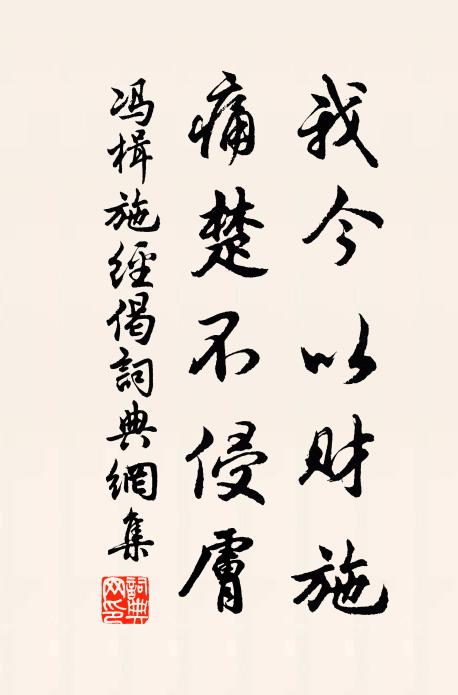 我今以財施
痛楚不侵膚
冯楫施經偈詞典網集
詞典網印